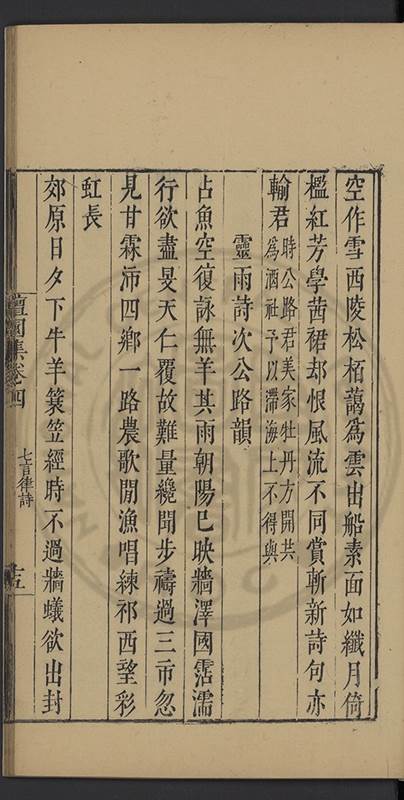 空作雪西陵松栢藹為雲出船素面如纖月倚
檻紅芳學茜裙却恨風流不同賞斬新詩句亦
輸君時公路君美家牡丹方開共
為酒社予以滯海上不得與
靈雨詩次公路韻
占魚空復詠無羊其雨朝陽巳映牆澤國霑濡
行欲盡旻天仁覆故難量纔聞步禱過三市忽
見甘霖沛四鄉一路農歌閒漁唱練祁西望彩
虹長
郊原日夕下牛羊簑笠經時不過牆蟻欲出封
檀園集卷四
七言律詩
十五